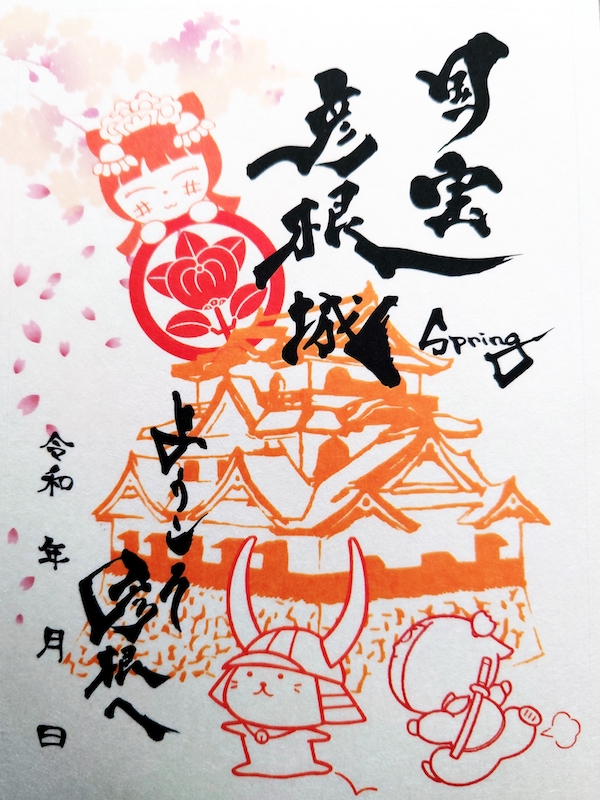 国宝
彦根城
Spring
ようこそ
彦根へ
令和 年 月 日